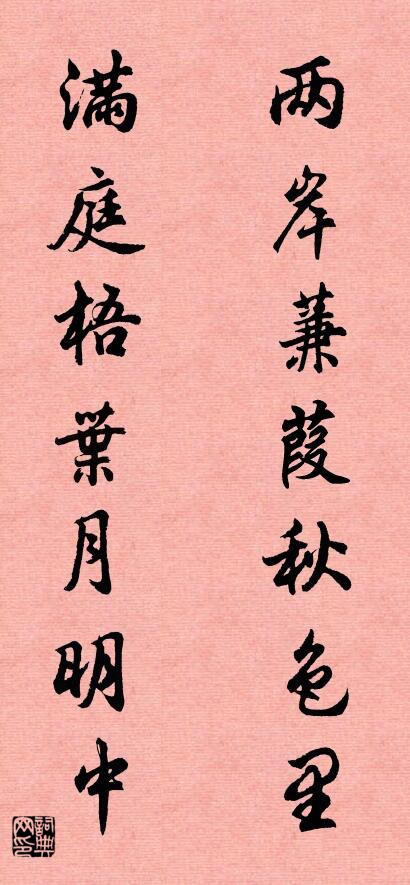 两岸蒹葭秋色里
满庭梧葉月明中
詞典网印